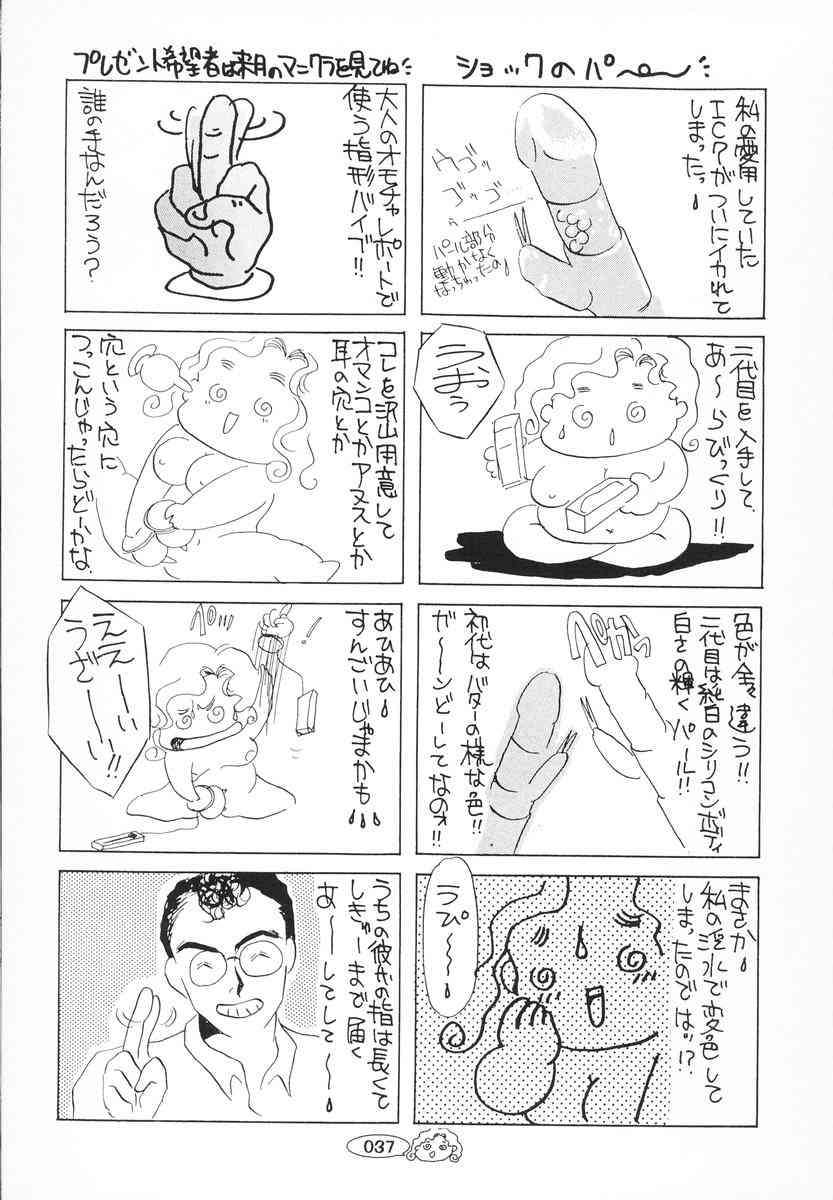 ショックのパール
私の愛用していた
ICPがついにイカれて
しまったっ
ウゴッ
ゴッゴ…
パール部分
動かなく
なっちゃったの
二代目を入手して、
あ〜らびっくり!!
うおぅ
色が全々違う!!
二代目は純白のシリコンボディ
白さの輝くパール!!
ペかっ
初代はバターの様な色!!
が〜〜ンどーしてなのォ!!
まさか
私の淫水で変色して
しまったのでは!?
うぴ〜〜
プレゼント希望者は来月のマニクラを見てね
大人のオモチャレポートで
使う指形バイブ!!
誰の手なんだろう?
コレを沢山用意して
オマンコとかアヌスとか
耳の穴とか
穴という穴に
つっこんじゃったらどーかな
あひあひ
すんごいじゃまかも
ペロロ
ええーい
うざーーい!!
うちの彼氏の指は長くて
しきゅーまで届く
あ〜〜してして〜
037